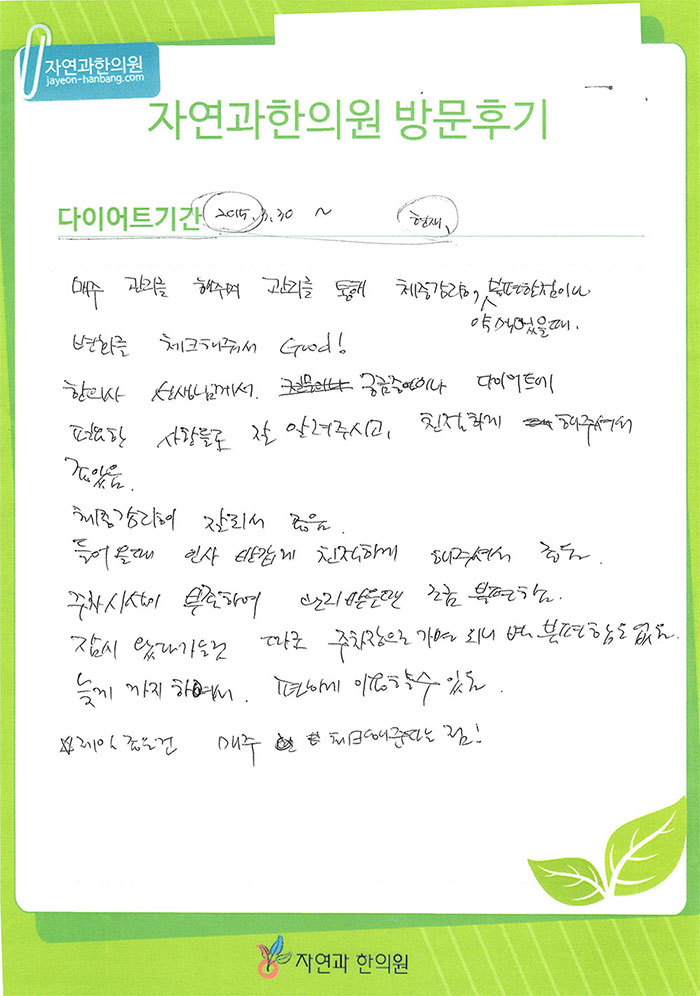 자연과한의원
jayeon-hanbang.com
자연과한의원 방문후기
다이어트기간 2015. 3. 30 ~ 현재,
매주 관리를 해주며 관리를 통해 체중감량, 불편한점이나
약 있을때.
변화를 체크해줘서 Good!
한의사 선생님께서. 궁금증이나 다이어트에
필요한 사항들로 잘 알려주시고, 친절하게 해주셔서
좋았음.
체중감량이 잘되서 좋음.
들어올때 인사 반갑게 친절하게 해주셔서 좋음.
주차시설이 부족하여 조금 불편함.
잠시 왔다가는건 따로 주차장으로 가면 되니 불편함도 없음.
늦게 까지 하여서. 편하게 이용할수 있음.
☆제일 좋은건 매주 체크해준다는 점!
자연과 한의원